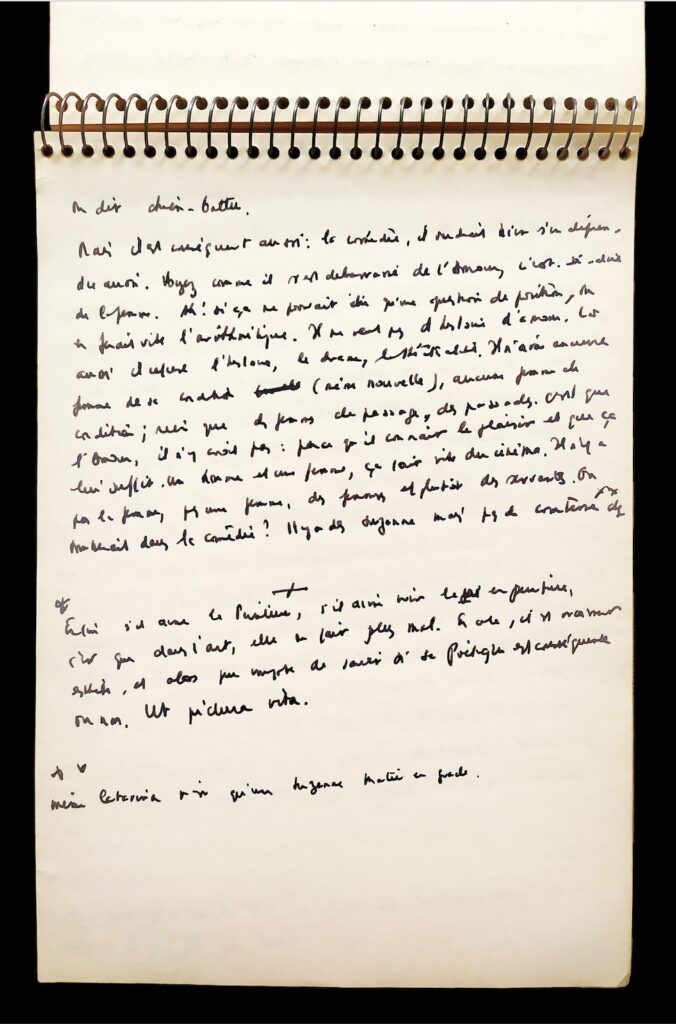 On dit chien-battu.
Mais il est conséquent aussi : la comédie, il voudrait bien s'en dispen-
ser aussi. Voyez comme il s'est débarrassé de l'Amour, c'est-à-dire
de la femme. Ah ! si ça ne pouvait être qu'une question de position, on
en ferait vite l'arithmétique. Il ne veut pas d'histoire d'amour. Là
aussi il refuse l'histoire, le drame, la théâtralité. Il n'a aucune
femme de sa condition (même nouvelle), aucune femme de
condition ; rien que des femmes de passage, des passades. C'est que
l'Amour, il n'y croit pas : parce qu'il connaît le plaisir et que ça
lui suffit. Un homme et une femme, ça fait vite du cinéma. Il n'y a
pas la femme, pas une femme, des femmes et plutôt des servantes. On
dans la comédie ? Il y a des Suzanne mais pas de comtesse **
* Enfin s'il aime le , s'il aime voir le en peinture,
c'est que dans l'art, elle ne fait plus mal. En cela, il est vraiment
esthète, et alors peu importe de savoir si sa Poétique est conséquente
ou non. Ut pictura vita.
* *
même Catarina n'est qu'une Suzanne montée en grade.